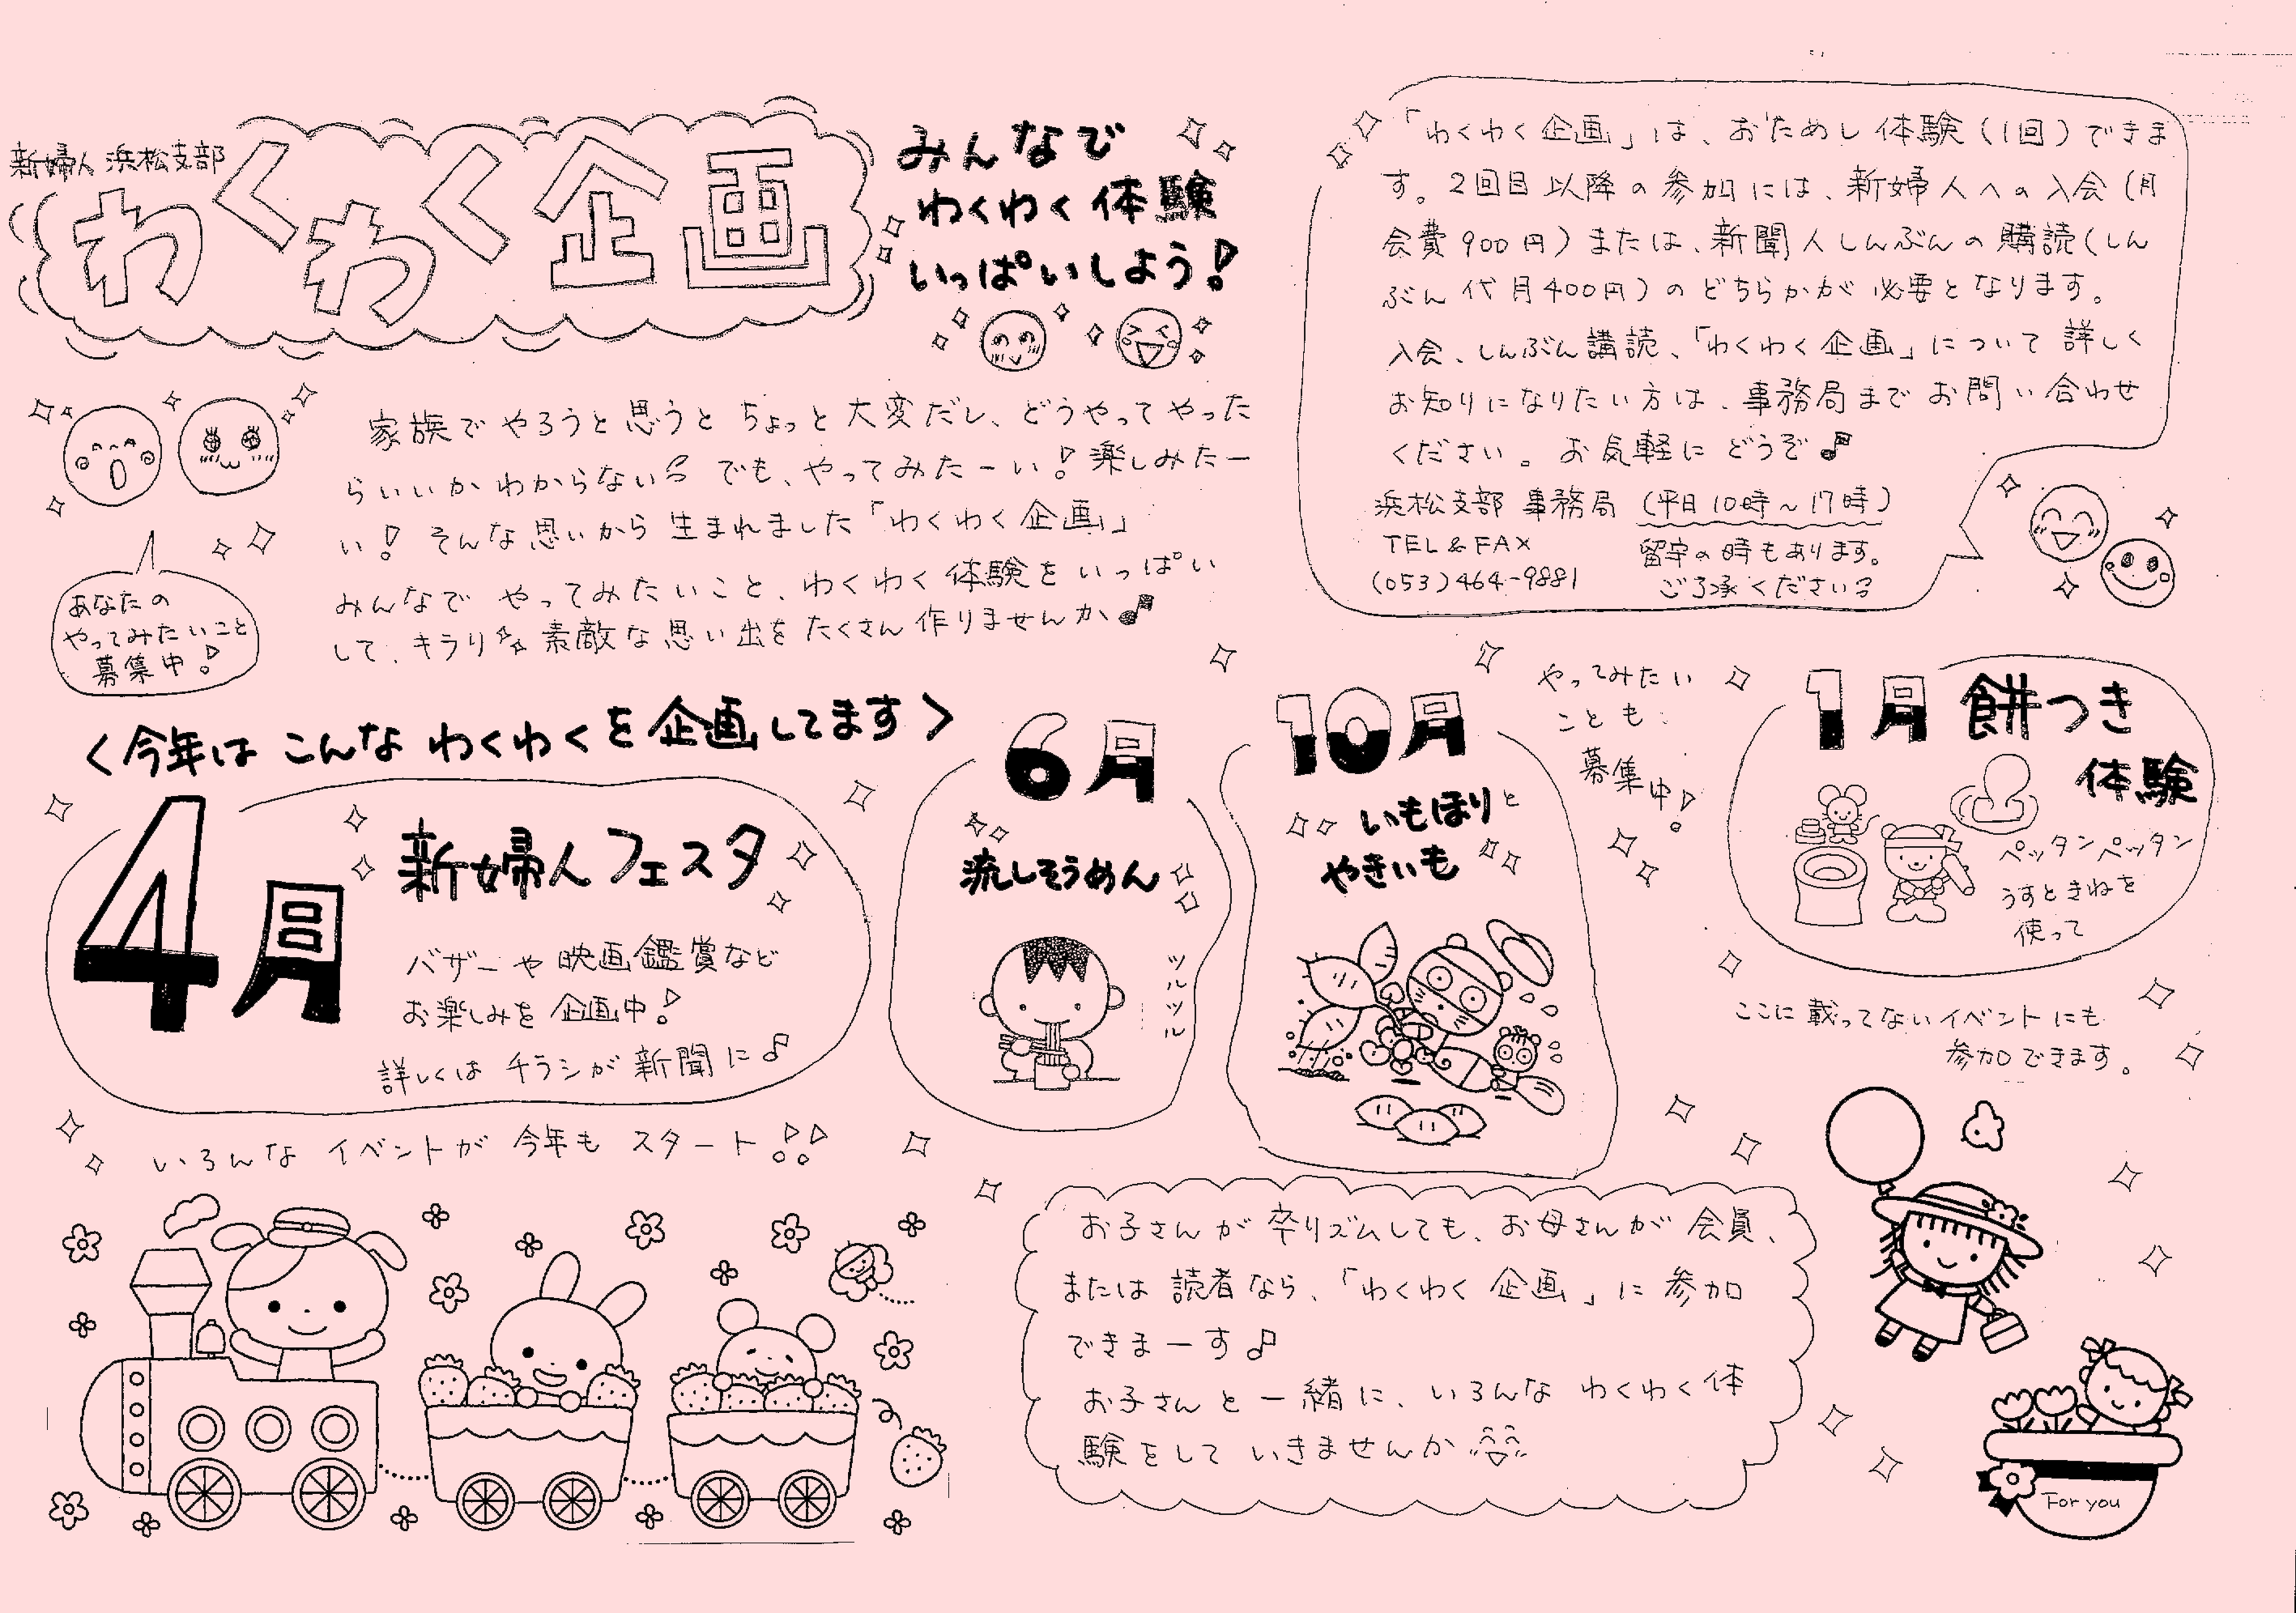 新婦人 浜松支部
わくわく企画
みんなで
わくわく体験
いっぱいしよう!
「わくわく企画」は、おためし体験(1回)できま
す。2回目以降の参加には、新婦人への入会(月
会費900円)または、新聞人しんぶんの購読(しん
ぶん代月400円)のどちらかが必要となります。
入会、しんぶん講読、「わくわく企画」について詳しく
お知りになりたい方は、事務局までお問い合わせ
ください。お気軽にどうぞ♪
浜松支部 事務局 (平日10時~17時)
TEL&FAX
(053)464-9881
留守の時もあります。
ご了承ください
家族でやろうと思うとちょっと大変だし、どうやってやった
らいいかわからない でも、やってみたーい!楽しみたー
い!そんな思いから生まれました「わくわく企画」
みんなでやってみたいこと、わくわく体験をいっぱい
して、キラリ素敵な思い出をたくさん作りませんか♪
あなたの
やってみたいこと
募集中!
<今年はこんなわくわくを企画してます>
4月
新婦人フェスタ
バザーや映画鑑賞など
お楽しみを企画中!
詳しくはチラシが新聞に♪
6月
流しそうめん
ツルツル
10月
いもほりと
やきいも
やってみたい
ことも
募集中!
1月 餅つき
体験
ペッタンペッタン
うすときねを
使って
ここに載ってないイベントにも
参加できます。
いろんなイベントが今年もスタート!!
お子さんが卒リズムしても、お母さんが会員、
または読者なら、「わくわく企画」に参加
できまーす♪
お子さんと一緒に、いろんなわくわく体
験をしていきませんか
For you